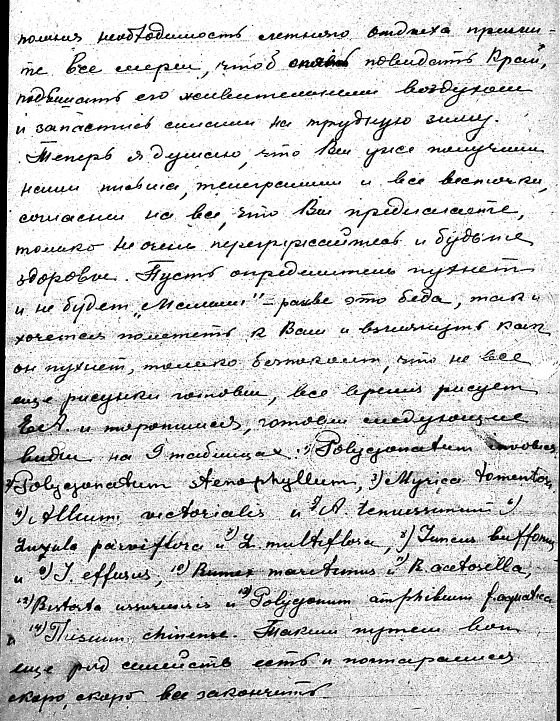 помня необходимость летнего отдыха примите
те все меры, чтоб опять повидать Край,
подышать его живительным воздухом
и запастись силами на трудную зиму.
Теперь я думаю, что Вы уже получили
наши письма, телеграммы и все весточки,
согласны на все, что Вы предлагаете,
только не очень перегружайтесь и будьте
здоровы. Пусть определитель пухнет
и не будет "Малыш" – разве это беда, так и
хочется полететь к Вам и взглянуть как
он пухнет, только беспокоит, что не все
еще рисунки готовы, все время рисует
и торопимся, готовы следующие
виды на 9 таблицах 1) Polygonatum
2) Polygonatum stenophyllum, 3) Myrica tomentosa,
4) Allium victorialis и 5) A. tenuissimum 6)
Luzula parviflora и 7) L. multiflora, 8) Juncus bufonius
и 9) J. effusus, 10) Rumex maritimus и 11) R. acetosella,
12) Bistorta ussuriensis и 13) Polygonum amphibium f. aquatica
14) chinense. Таким путем вот
еще ряд семейств есть и постараемся
скоро, скоро все закончить